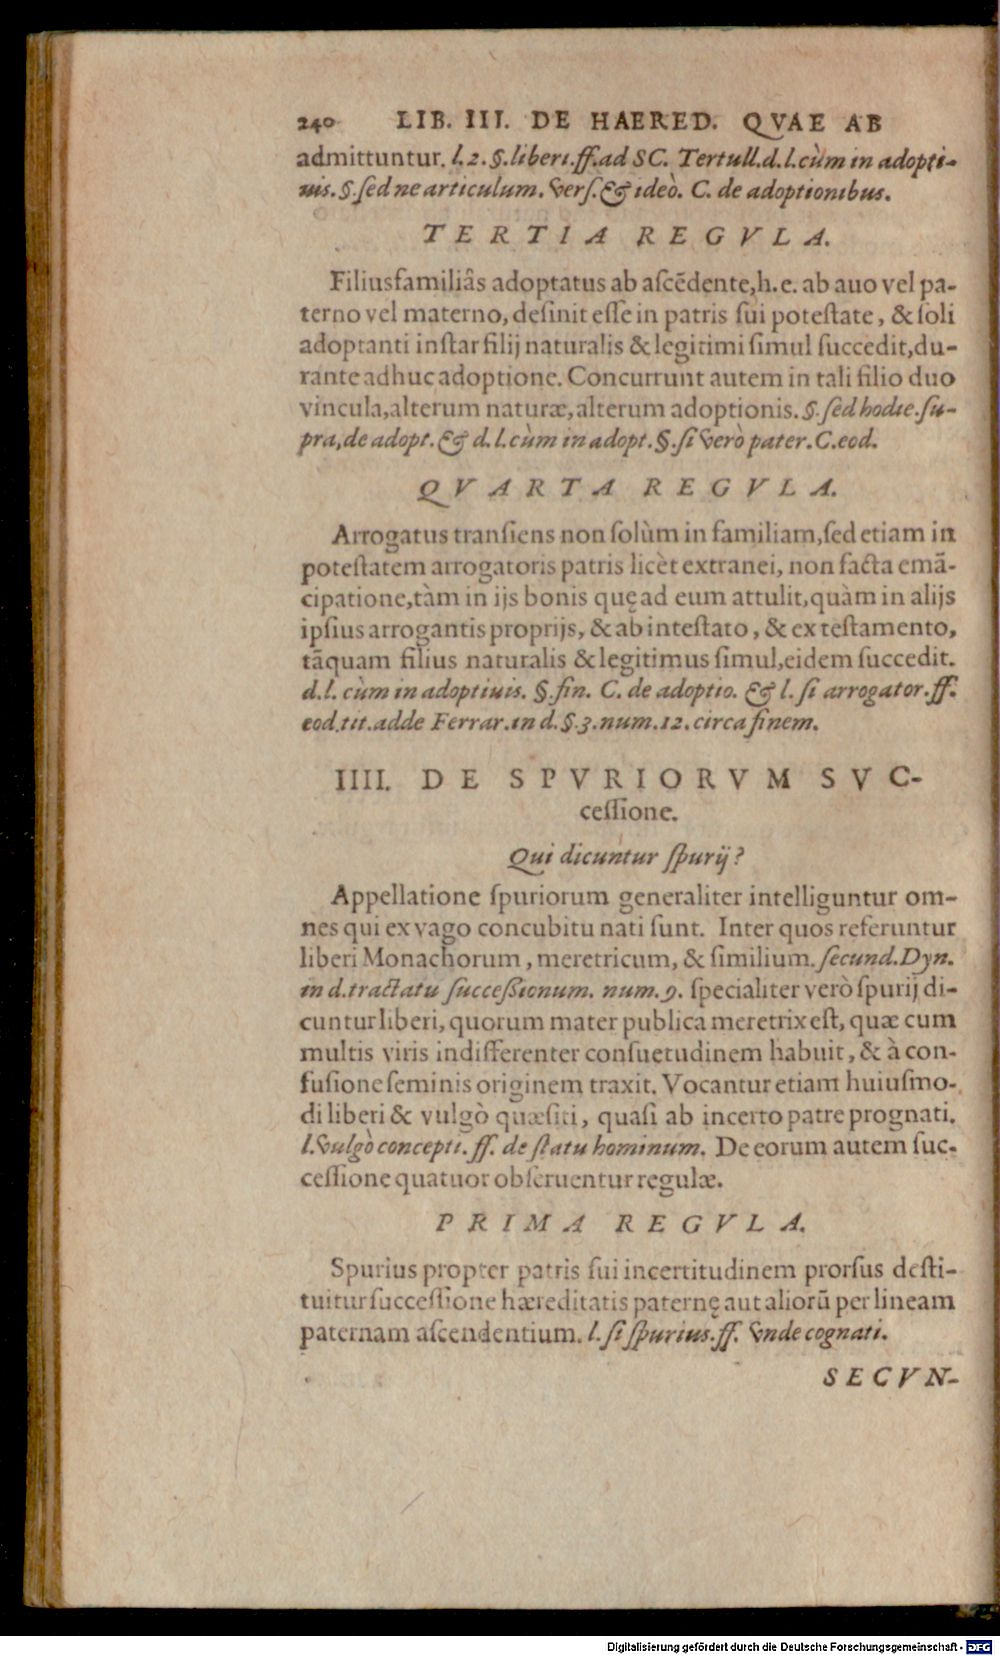 240 LIB. III. DE HAERED. QVAE AB
admittuntur. l. 2. §. liberi. ff. ad SC. Tertull. d. l. cùm in adopti-
uis. §. sed ne articulum. vers. & ideò. C. de adoptionibus.
TERTIA REGVLA.
Filiusfamiliâs adoptatus ab ascēdente, h. e. ab auo vel pa-
terno vel materno, desinit esse in patris sui potestate, & soli
adoptanti instar filij naturalis & legitimi simul succedit, du-
rante adhuc adoptione. Concurrunt autem in tali filio duo
vincula, alterum naturæ, alterum adoptionis. §. sed hodie. su-
pra, de adopt. & d. l. cùm in adopt. §. si verò pater. C. eod.
QVARTA REGVLA.
Arrogatus transiens non solùm in familiam, sed etiam in
potestatem arrogatoris patris licèt extranei, non facta emā-
cipatione, tàm in ijs bonis quę ad eum attulit, quàm in alijs
ipsius arrogantis proprijs, & ab intestato, & ex testamento,
tāquam filius naturalis & legitimus simul, eidem succedit.
d. l. cùm in adoptiuis. §. fin. C. de adoptio. & l. si arrogator. ff.
eod. tit. adde Ferrar. in d. §. 3. num. 12. circa finem.
IIII. DE SPVRIORVM SVC-
cessione.
Qui dicuntur spurij?
Appellatione spuriorum generaliter intelliguntur om-
nes qui ex vago concubitu nati sunt. Inter quos referuntur
liberi Monachorum, meretricum, & similium. secund. Dyn.
in d. tractatu successionum. num. 9. specialiter verò spurij di-
cuntur liberi, quorum mater publica meretrix est, quæ cum
multis viris indifferenter consuetudinem habuit, & à con-
fusione seminis originem traxit. Vocantur etiam huiusmo-
di liberi & vulgò quæsiti, quasi ab incerto patre prognati.
l. vulgò concepti. ff. de statu hominum. De eorum autem suc-
cessione quatuor obseruentur regulæ.
PRIMA REGVLA.
Spurius propter patris sui incertitudinem prorsus desti-
tuitur successione hæreditatis paternę aut aliorū per lineam
paternam ascendentium. l. si spurius. ff. vnde cognati.
SECVN-
Digitalisierung gefördert durch die Deutsche Forschungsgemeinschaft - DFG